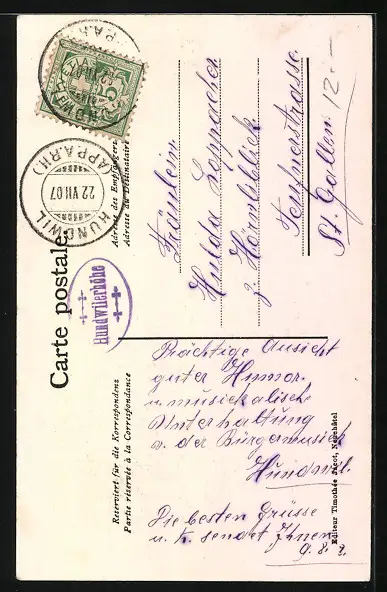 Carte postale.
HUNDWIL
22.VII.07
(APP.A.RH.)
Hundwilerhöhe
Adresse des Empfängers
Adresse du Destinataire
Fräulein
Hulda
z. Hörnliblick
Teufnerstrasse
St. Gallen
12.-
Reserviert für die Korrespondenz
Partie réservée à la Correspondance
Prächtige Aussicht
guter Humor
u. musikalische
Unterhaltung
v. der Bürgermusik
Hundwil.
Die besten Grüsse
u. sendet Ihnen
Editeur Timothée Jacot, Neuchâtel